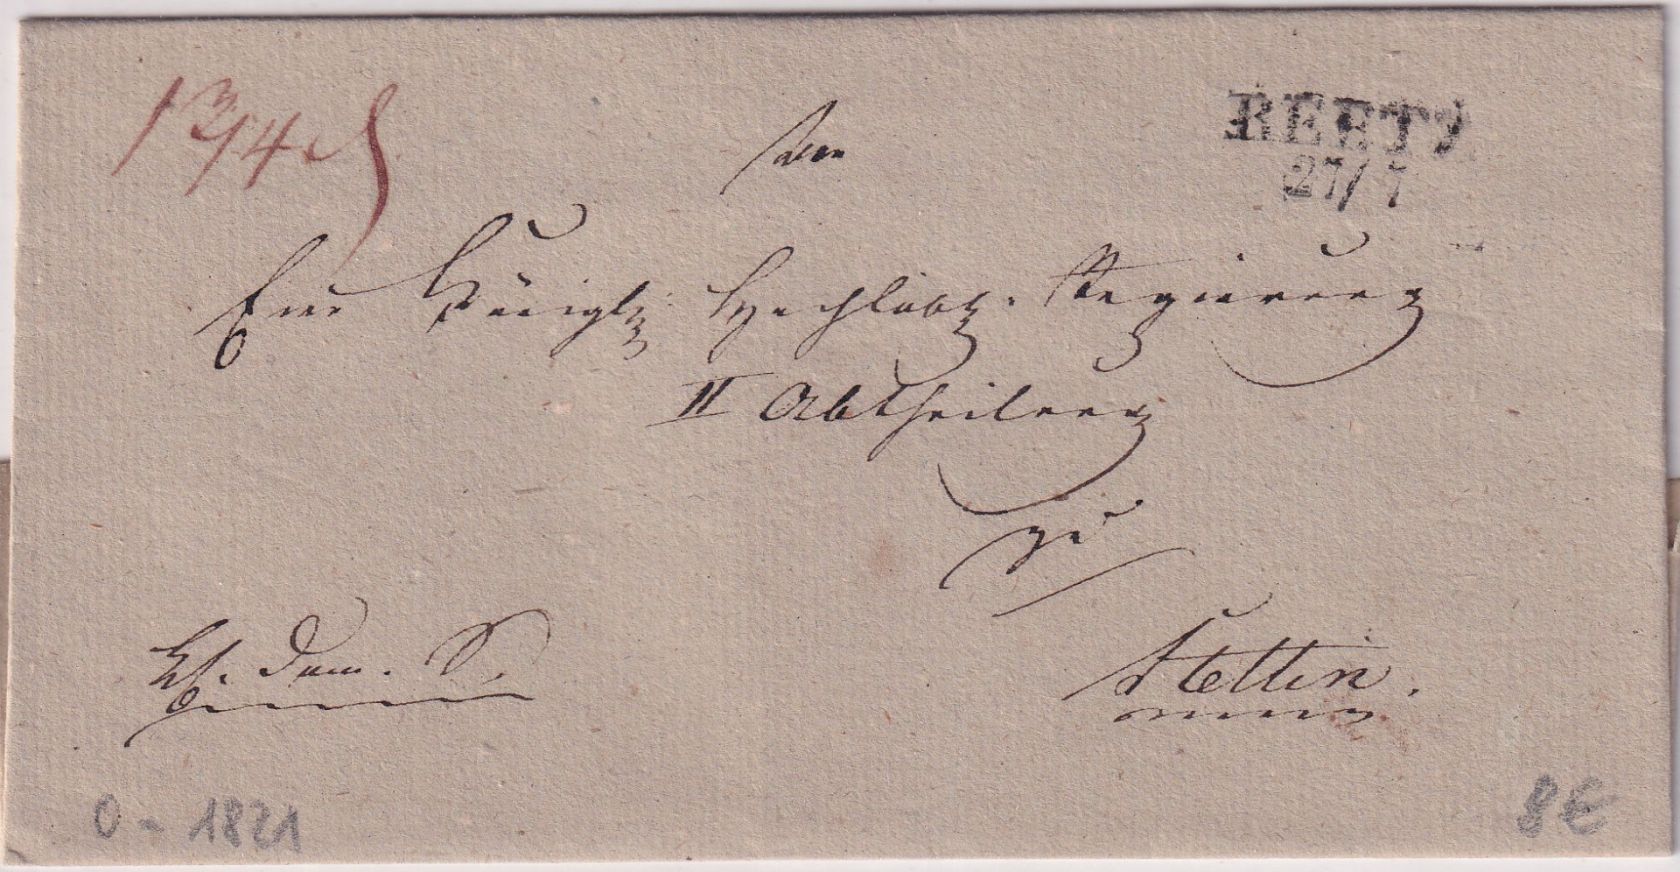 1 3/4 S
BEETZ
27/7
An
Eine Königl: Hochlöbl. Regierung
II Abtheilung
zu
Stettin.
Dom. S.
0 - 1821
8€